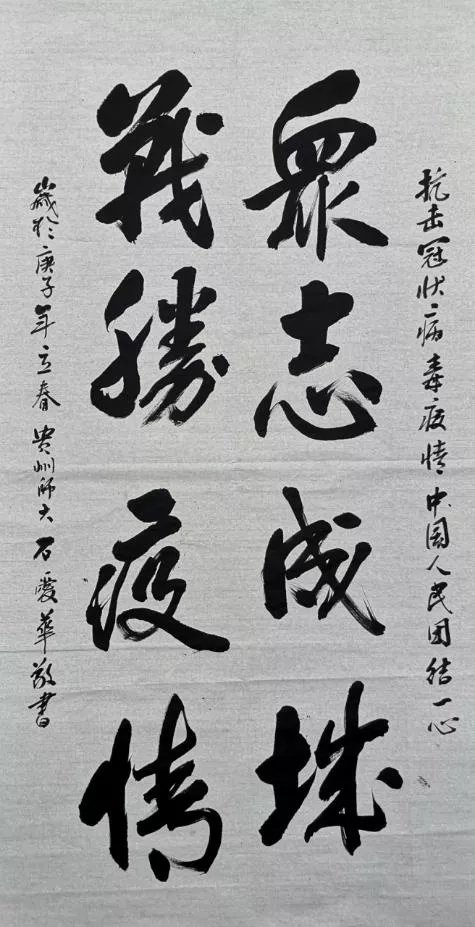 抗击冠状病毒疫情中国人民团结一心
众志成城
戰勝疫情
歲於庚子年立春贵州师大石爱華敬書